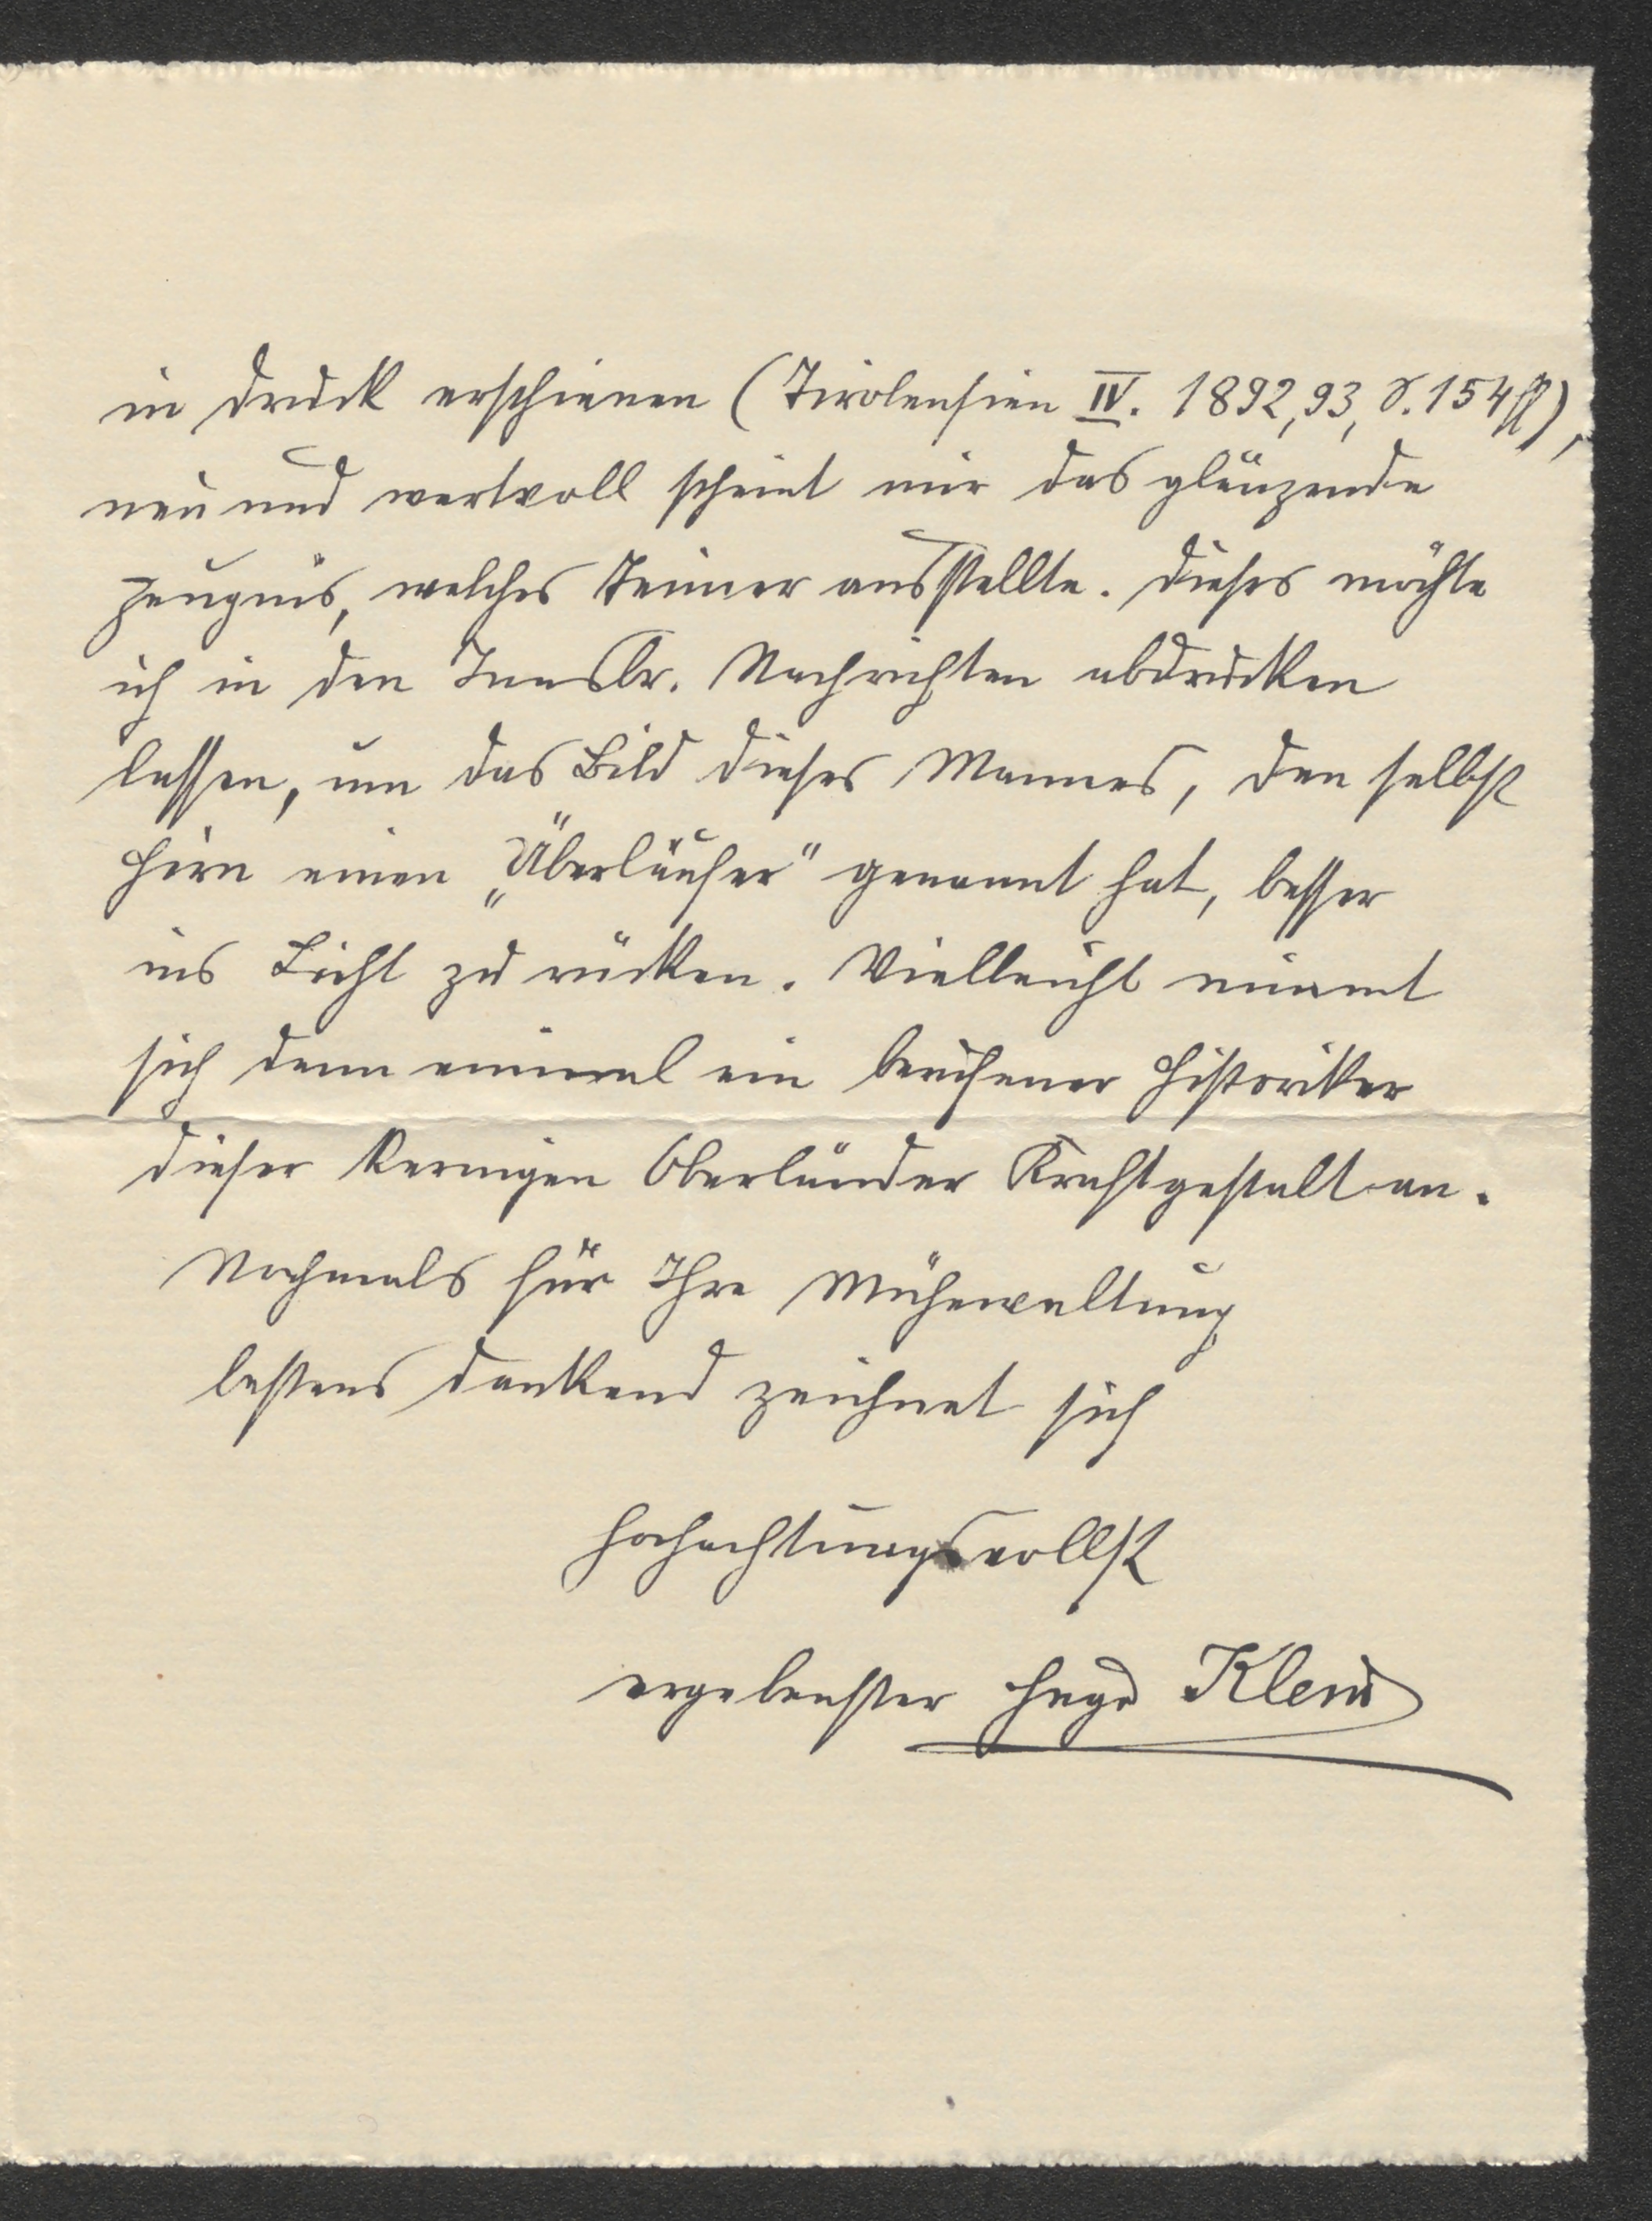 in Druck erschienen (Tirolensien IV. 1892,93, S. 154ff),
neu und wertvoll scheint mir das glänzende
Zeugnis, welches Teimer ausstellte. Dieses möchte
ich in den Innsbr. Nachrichten abdrucken
lassen, um das Bild dieses Mannes, den selbst
Hirn einen „Überläufer" genannt hat, besser
ins Licht zu rücken. Vielleicht nimmt
sich dann einmal ein berufener Historiker
dieser kernigen Oberländer Kraftgestalt an.
Nochmals für Ihre Mühewaltung
bestens dankend zeichnet sich
hochachtungsvollst
ergebenster Hugo Klein